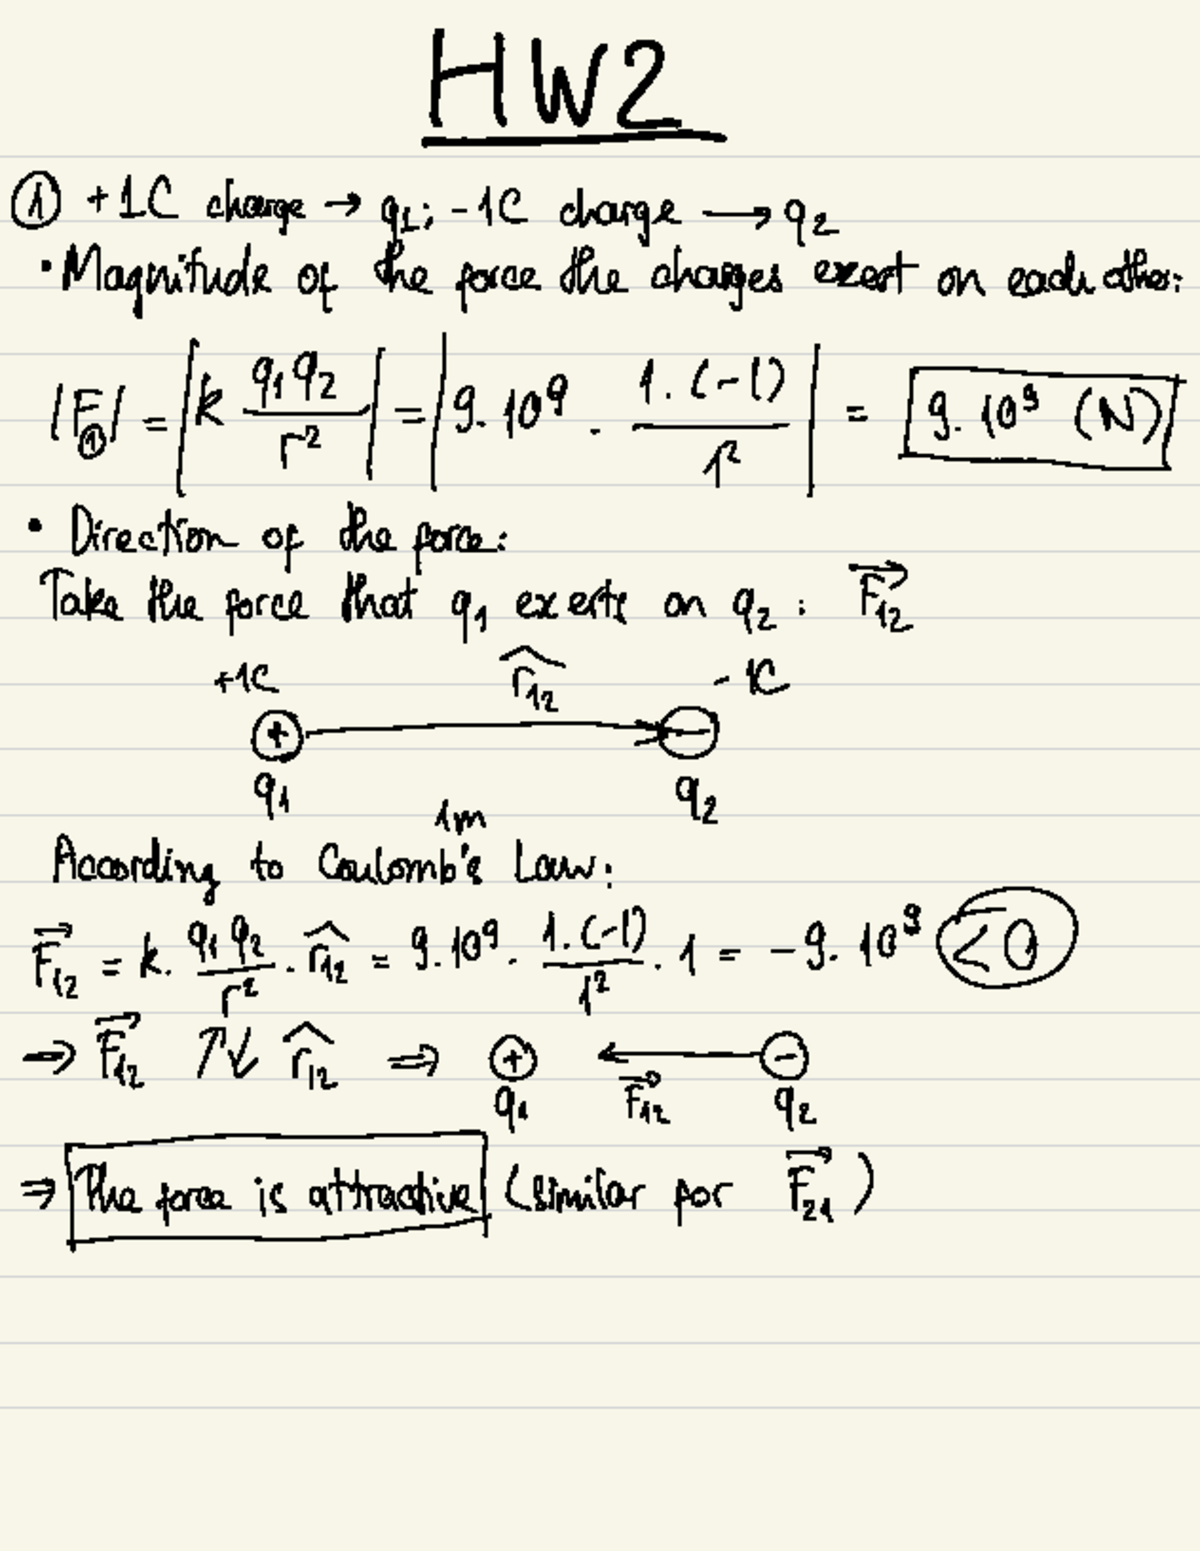 HW2
① +1C charge → q₁; -1C charge → q₂
• Magnitude of the force the charges exert on each other:
|F①| = |k q₁q₂/r²| = |9.10⁹ . 1.(-1)/1²| = 9.10⁹ (N)
• Direction of the force:
Take the force that q₁ exerts on q₂: F₁₂→
+1C r̂₁₂ -1C
+ −
q₁ q₂
1m
According to Coulomb's Law:
F₁₂→ = k. q₁q₂/r² . r̂₁₂ = 9.10⁹. 1.(-1)/1² . 1 = -9.10⁹ < 0
⇒ F₁₂→ ↑↓ r̂₁₂ ⇒ + ← −
q₁ F₁₂→ q₂
⇒ The force is attractive (similar for F₂₁→)